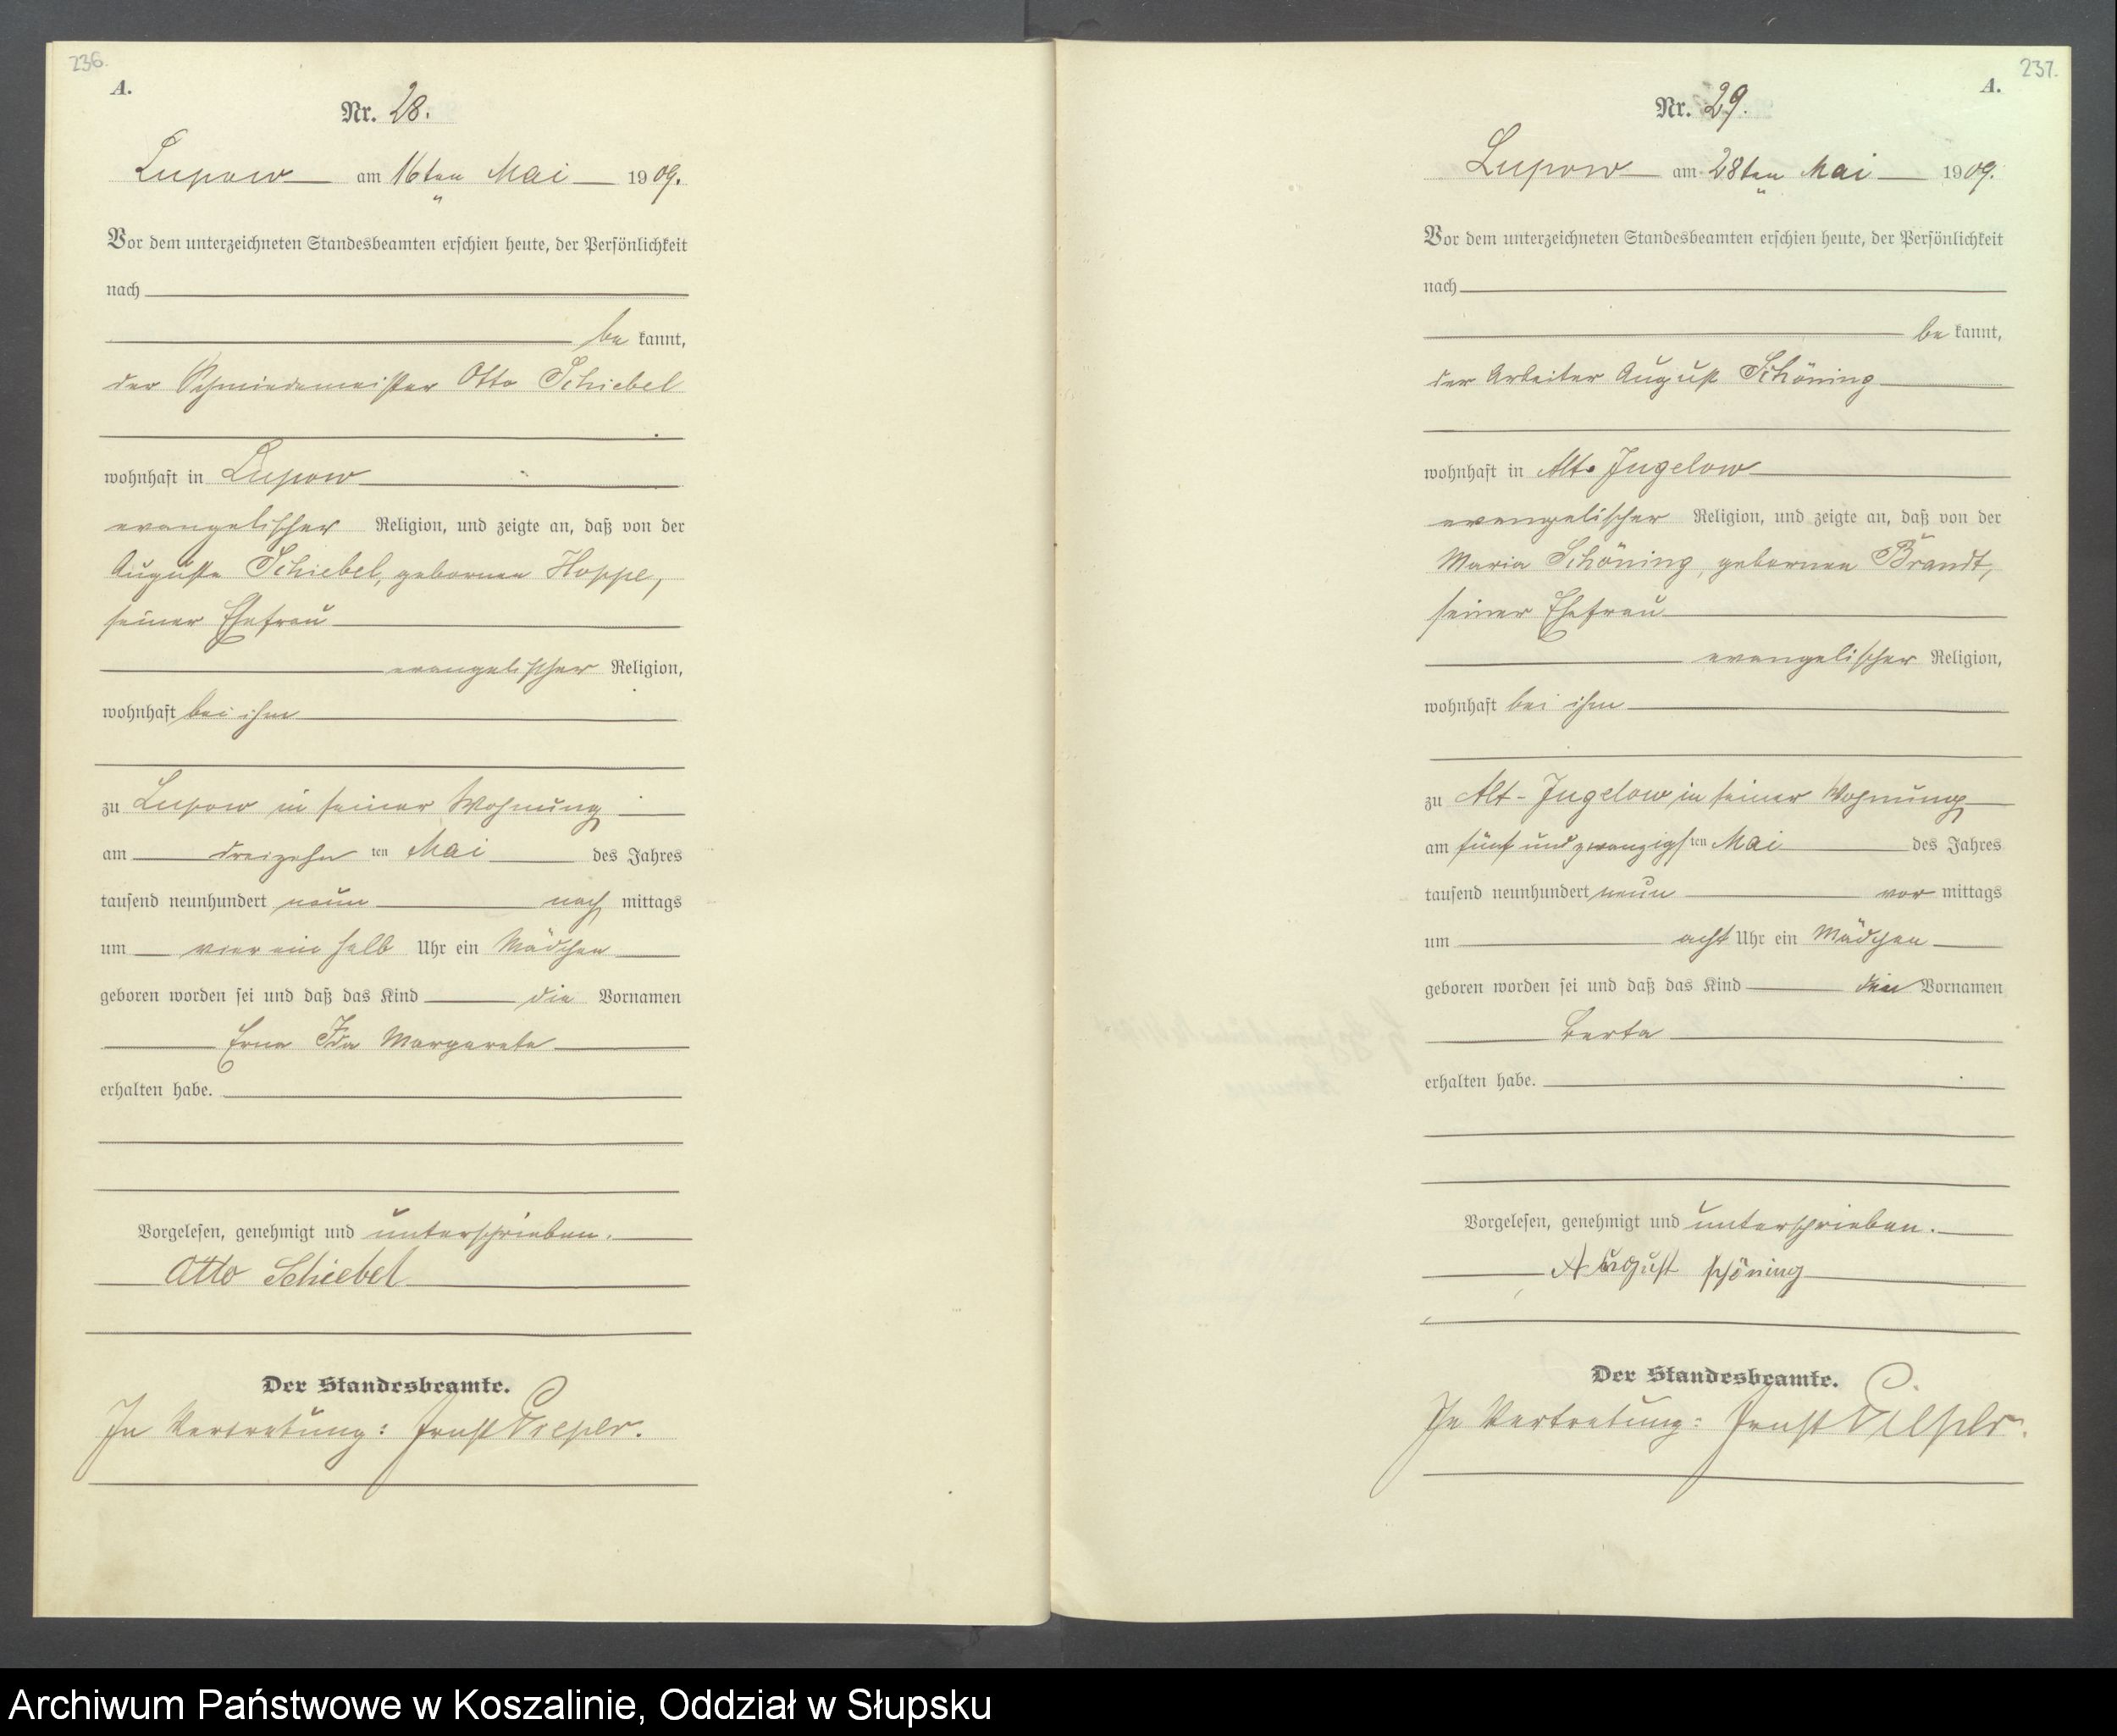 236.
A.
Nr. 28.
Lupow am 16ten Mai 1909.
Vor dem unterzeichneten Standesbeamten erschien heute, der Persönlichkeit
nach
be kannt,
der Schmiedemeister Otto Schiebel
wohnhaft in Lupow
evangelischer Religion, und zeigte an, daß von der
Auguste Schiebel, gebornen Hoppe,
seiner Ehefrau
evangelischer Religion,
wohnhaft bei ihm
zu Lupow in seiner Wohnung
am dreizehn ten Mai des Jahres
tausend neunhundert neun nach mittags
um vier ein halb Uhr ein Mädchen
geboren worden sei und daß das Kind die Vornamen
Erna Ida Margarete
erhalten habe.
Vorgelesen, genehmigt und unterschrieben.
Otto Schiebel
Der Standesbeamte.
In Vertretung: Ernst Pieper.
237.
A.
Nr. 29.
Lupow am 28ten Mai 1909.
Vor dem unterzeichneten Standesbeamten erschien heute, der Persönlichkeit
nach
be kannt,
der Arbeiter August Schöning
wohnhaft in Alt-Jugelow
evangelischer Religion, und zeigte an, daß von der
Maria Schöning, gebornen Brandt,
seiner Ehefrau
evangelischer Religion,
wohnhaft bei ihm
zu Alt-Jugelow in seiner Wohnung
am fünf und zwanzigsten Mai des Jahres
tausend neunhundert neun vor mittags
um acht Uhr ein Mädchen
geboren worden sei und daß das Kind den Vornamen
Berta
erhalten habe.
Vorgelesen, genehmigt und unterschrieben.
August Schöning
Der Standesbeamte.
In Vertretung: Ernst Pieper.
Archiwum Państwowe w Koszalinie, Oddział w Słupsku